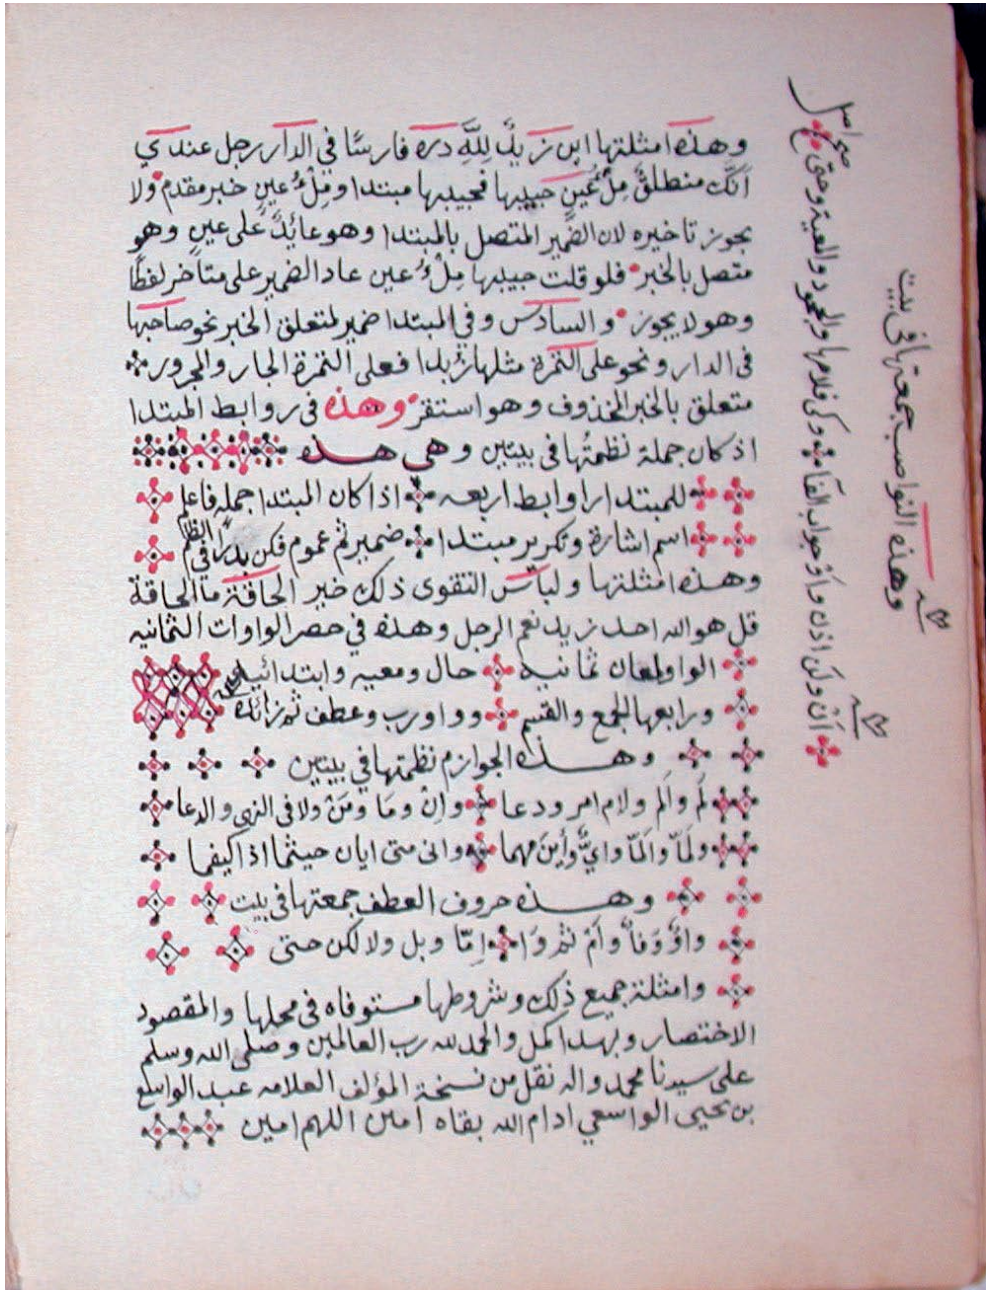 وهذه امثلتها اين زيدٌ لِلَّهِ دره فارسًا في الدار رجل عندي
انّك منطلقٌ مِلْءُ عين حبيبها فحبيبها مبتدا ومِلْءُ عين خبر مقدم ولا
يجوز تاخيره لان الضّمير المتصل بالمبتدا وهو عائدٌ على عين وهو
متصل بالخبر فلو قلت حبيبها مِلْءُ عين عاد الضمير على متأخر لفظًا
وهو لا يجوز والسادس وفي المبتدا ضمير لمتعلق الخبر نحو صاحبها
في الدار ونحو على التمرة مثلها زبدا فعلى التمرة الجار والمجرور
متعلق بالخبر المحذوف وهو استقر وهذه في روابط المبتدا
اذ كان جملة نظمتُها في بيتين وهي هذه
للمبتدا روابط اربعه اذا كان المبتدا جمله فاعلم
اسم اشارة وتكرير مبتدا ضمير ثم عموم فكن بدرًا في الظلم
وهذه امثلتها ولباس التقوى ذلك خير الحاقة ما الحاقة
قل هو الله احد زيد نعم الرجل وهذه في حصر الواوات الثمانيه
الواو لمعان ثمانيه حال ومعيه وابتدائيه
ورابعها الجمع والقسم وواو رب وعطف ثم زائدة
وهذه الجوازم نظمتها في بيتين
لَم والَم ولام امر ودعا وإنْ ومَا ومَنْ ولا في النهي والدعا
ولمّا والمّا وايٌّ وأينَ مهما وانى متى ايان حيثما اذا كيفما
وهذه حروف العطف جمعتها في بيت
واوٌ وَفاٌ وأمْ ثم وَأو إمّا وبل ولا لكن حتى
وامثلة جميع ذلك وشروطها مستوفاه في محلها والمقصود
الاختصار وبهذا كمل والحمد لله رب العالمين وصلى الله وسلم
على سيدنا محمد واله نقل من نسخة المؤلف العلامه عبد الواسع
بن يحيى الواسعي ادام الله بقاه امين اللهم امين
وهذه النواصب جمعتها في بيت
أنْ ولن اذن واو جواب الفا وكي فلامها والجحود والمعية وحتى
صح اصل